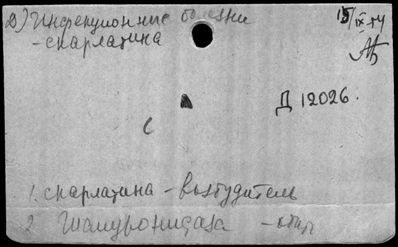 2) Инфекционные болезни
15/IX 54
- скарлатина
Д 12026.
1. скарлатина - возбудитель
2. Гиалуронидаза